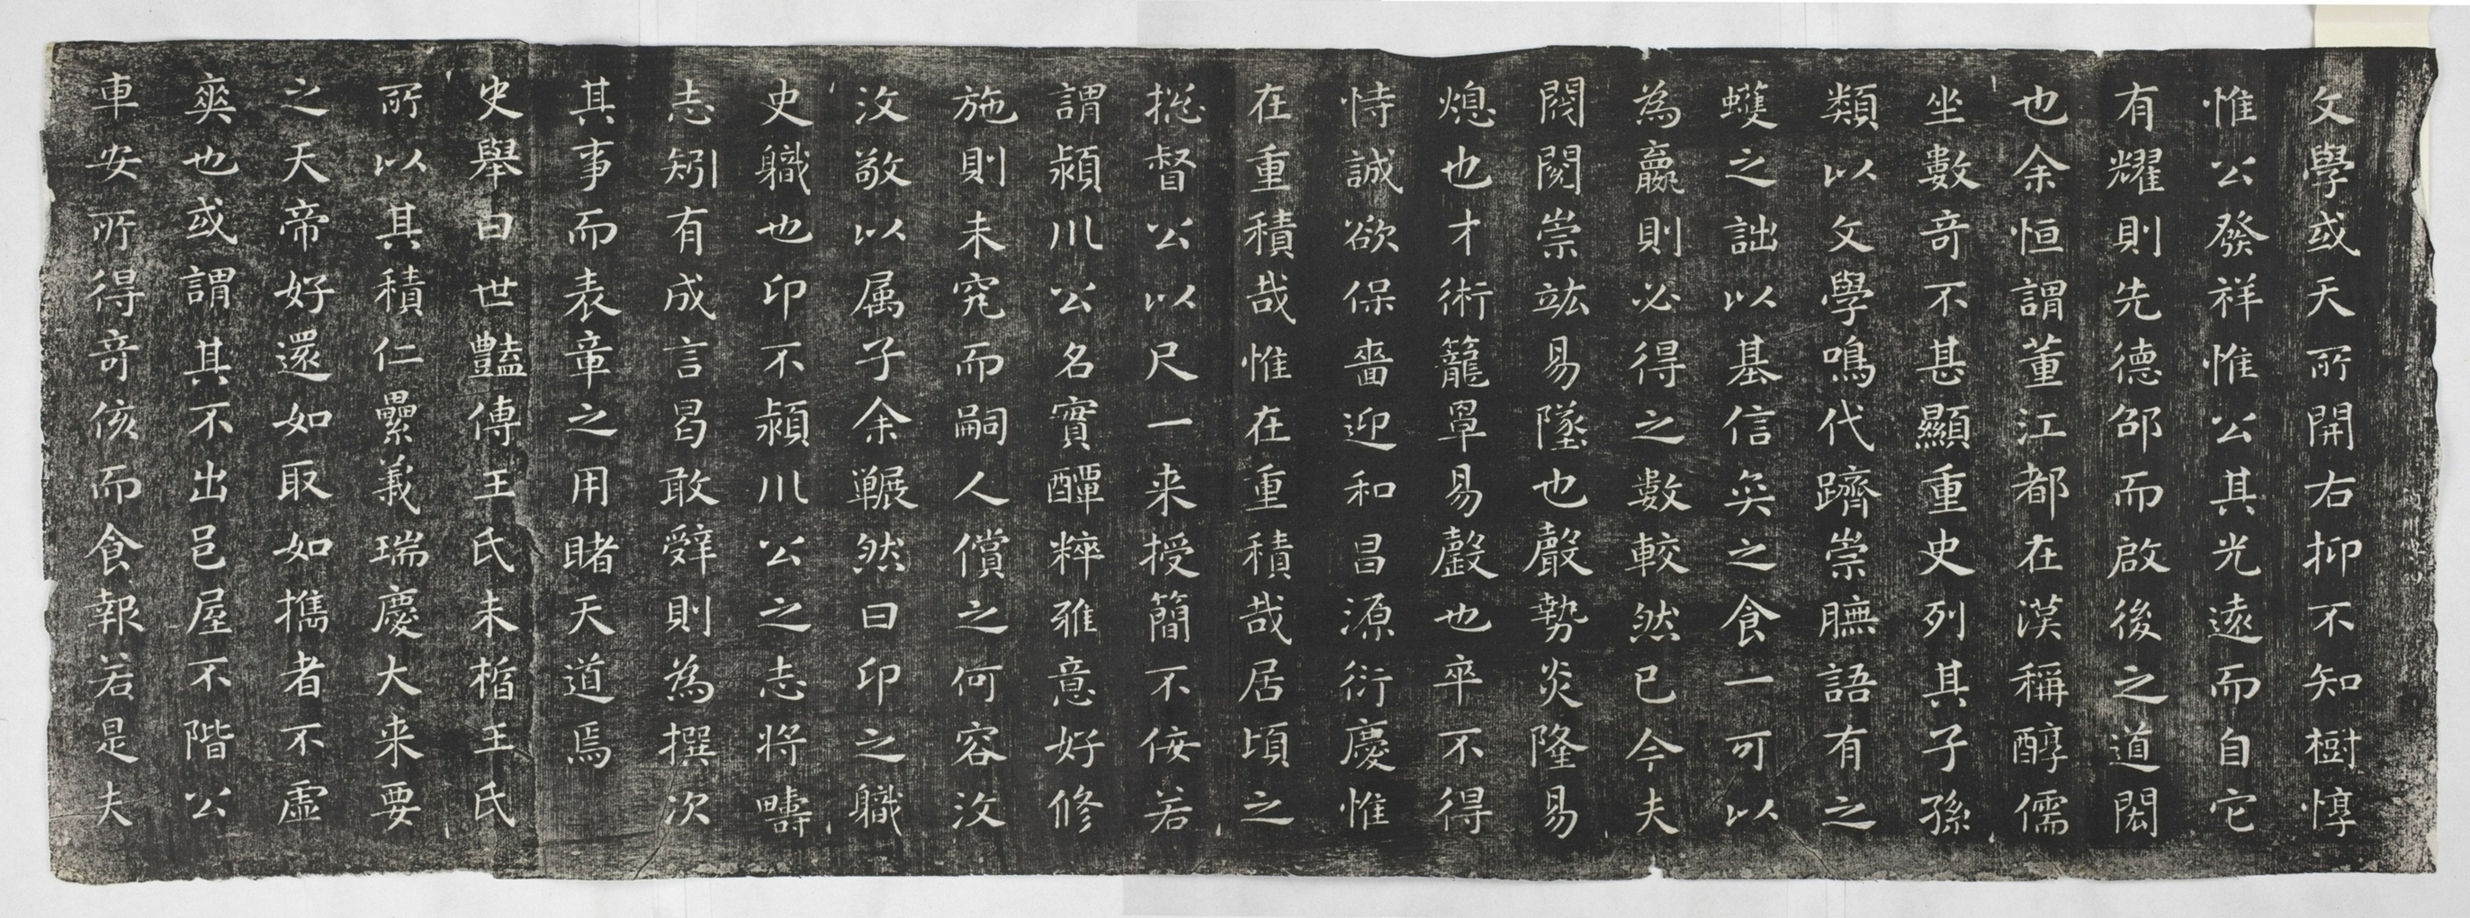 文學或天所開右抑不知樹惇
惟公發祥惟公其光遠而自它
有耀則先德邵而啟後之道閎
也余恒謂董江都在漢稱醇儒
坐數奇不甚顯重史列其子孫
類以文學鳴代躋崇膴語有之
蠖之詘以基信矣之食一可以
為贏則必得之數較然已今夫
閥閱崇竑易墜也聲勢炎隆易
熄也才術籠罩易𣫍也卒不得
恃誠欲保嗇迎和昌源衍慶惟
在重積哉惟在重積哉居頃之
㧾督公以尺一来授簡不佞若
謂潁川公名實醰粹雅意好修
施則未究而嗣人償之何容汶
汶敬以属子余囅然曰印之職
史職也印不潁川公之志将疇
志矧有成言曷敢辤則為撰次
其事而表章之用睹天道焉
史舉曰世豔傳王氏未楯王氏
所以其積仁纍義瑞慶大来要
之天帝好還如取如攜者不虛
爽也或謂其不出邑屋不階公
車安所得奇侅而食報若是夫